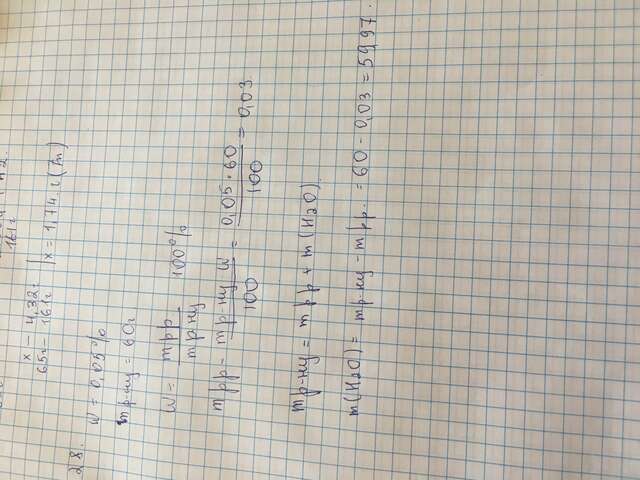 161г
x – 4,32г
65г – 161г | x = 1,74 г (Zn)
28.
W = 0,05%
mр-ну = 60г
W = mрр / mр-ну 100%
mрр = mр-ну W / 100 = 0,05 · 60 / 100 = 0,03
mр-ну = mрр + m(H2O)
m(H2O) = mр-ну – mрр. = 60 – 0,03 = 59,97.